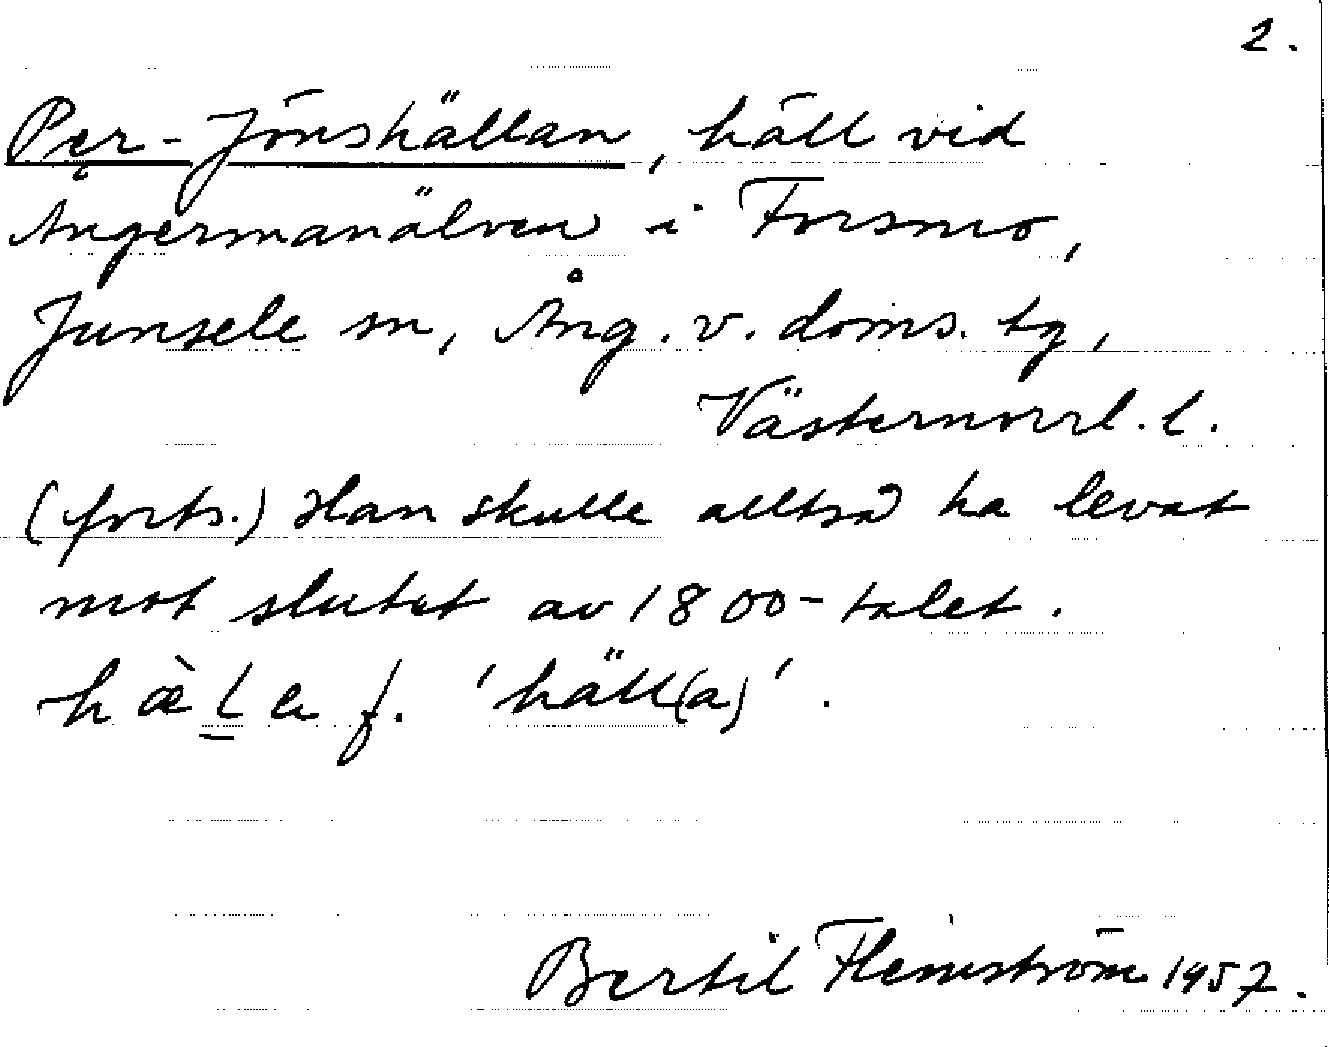 2.
Per-Jönshällan, häll vid
Ångermanälven i Forsmo,
Junsele sn, Ång. v. doms. tg,
Västernorrl. l.
(forts.) Han skulle alltså ha levat
mot slutet av 1800-talet.
hæ̀la f. 'häll(a)'.
Bertil Flemström 1957.